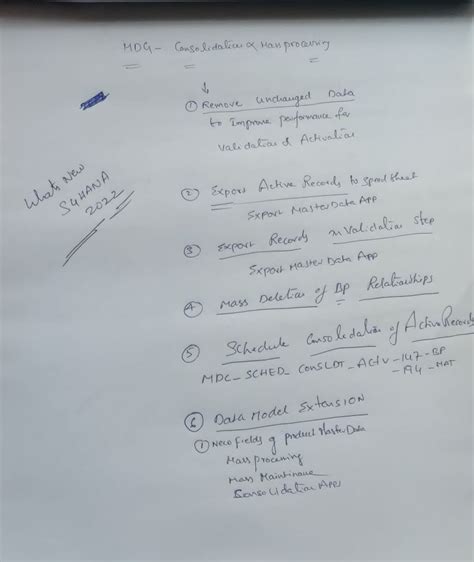 MDG - Consolidation & Mass processing
① Remove unchanged Data
to Improve performance for
Validation & Activation
Whats New
S4HANA
2022
② Export Active Records to Spread sheet
Export Master Data App
③ Export Records in Validation Step
Export Master Data App
④ Mass Deletion of BP Relationships
⑤ Schedule Consolidation of Active Records
MDC_SCHED_CONSLDT_ACTV - 147 - BP
- A4 - MAT
⑥ Data Model Extension
① New Fields of product Master Data
Mass processing
Mass Maintinance
Consolidation Apps